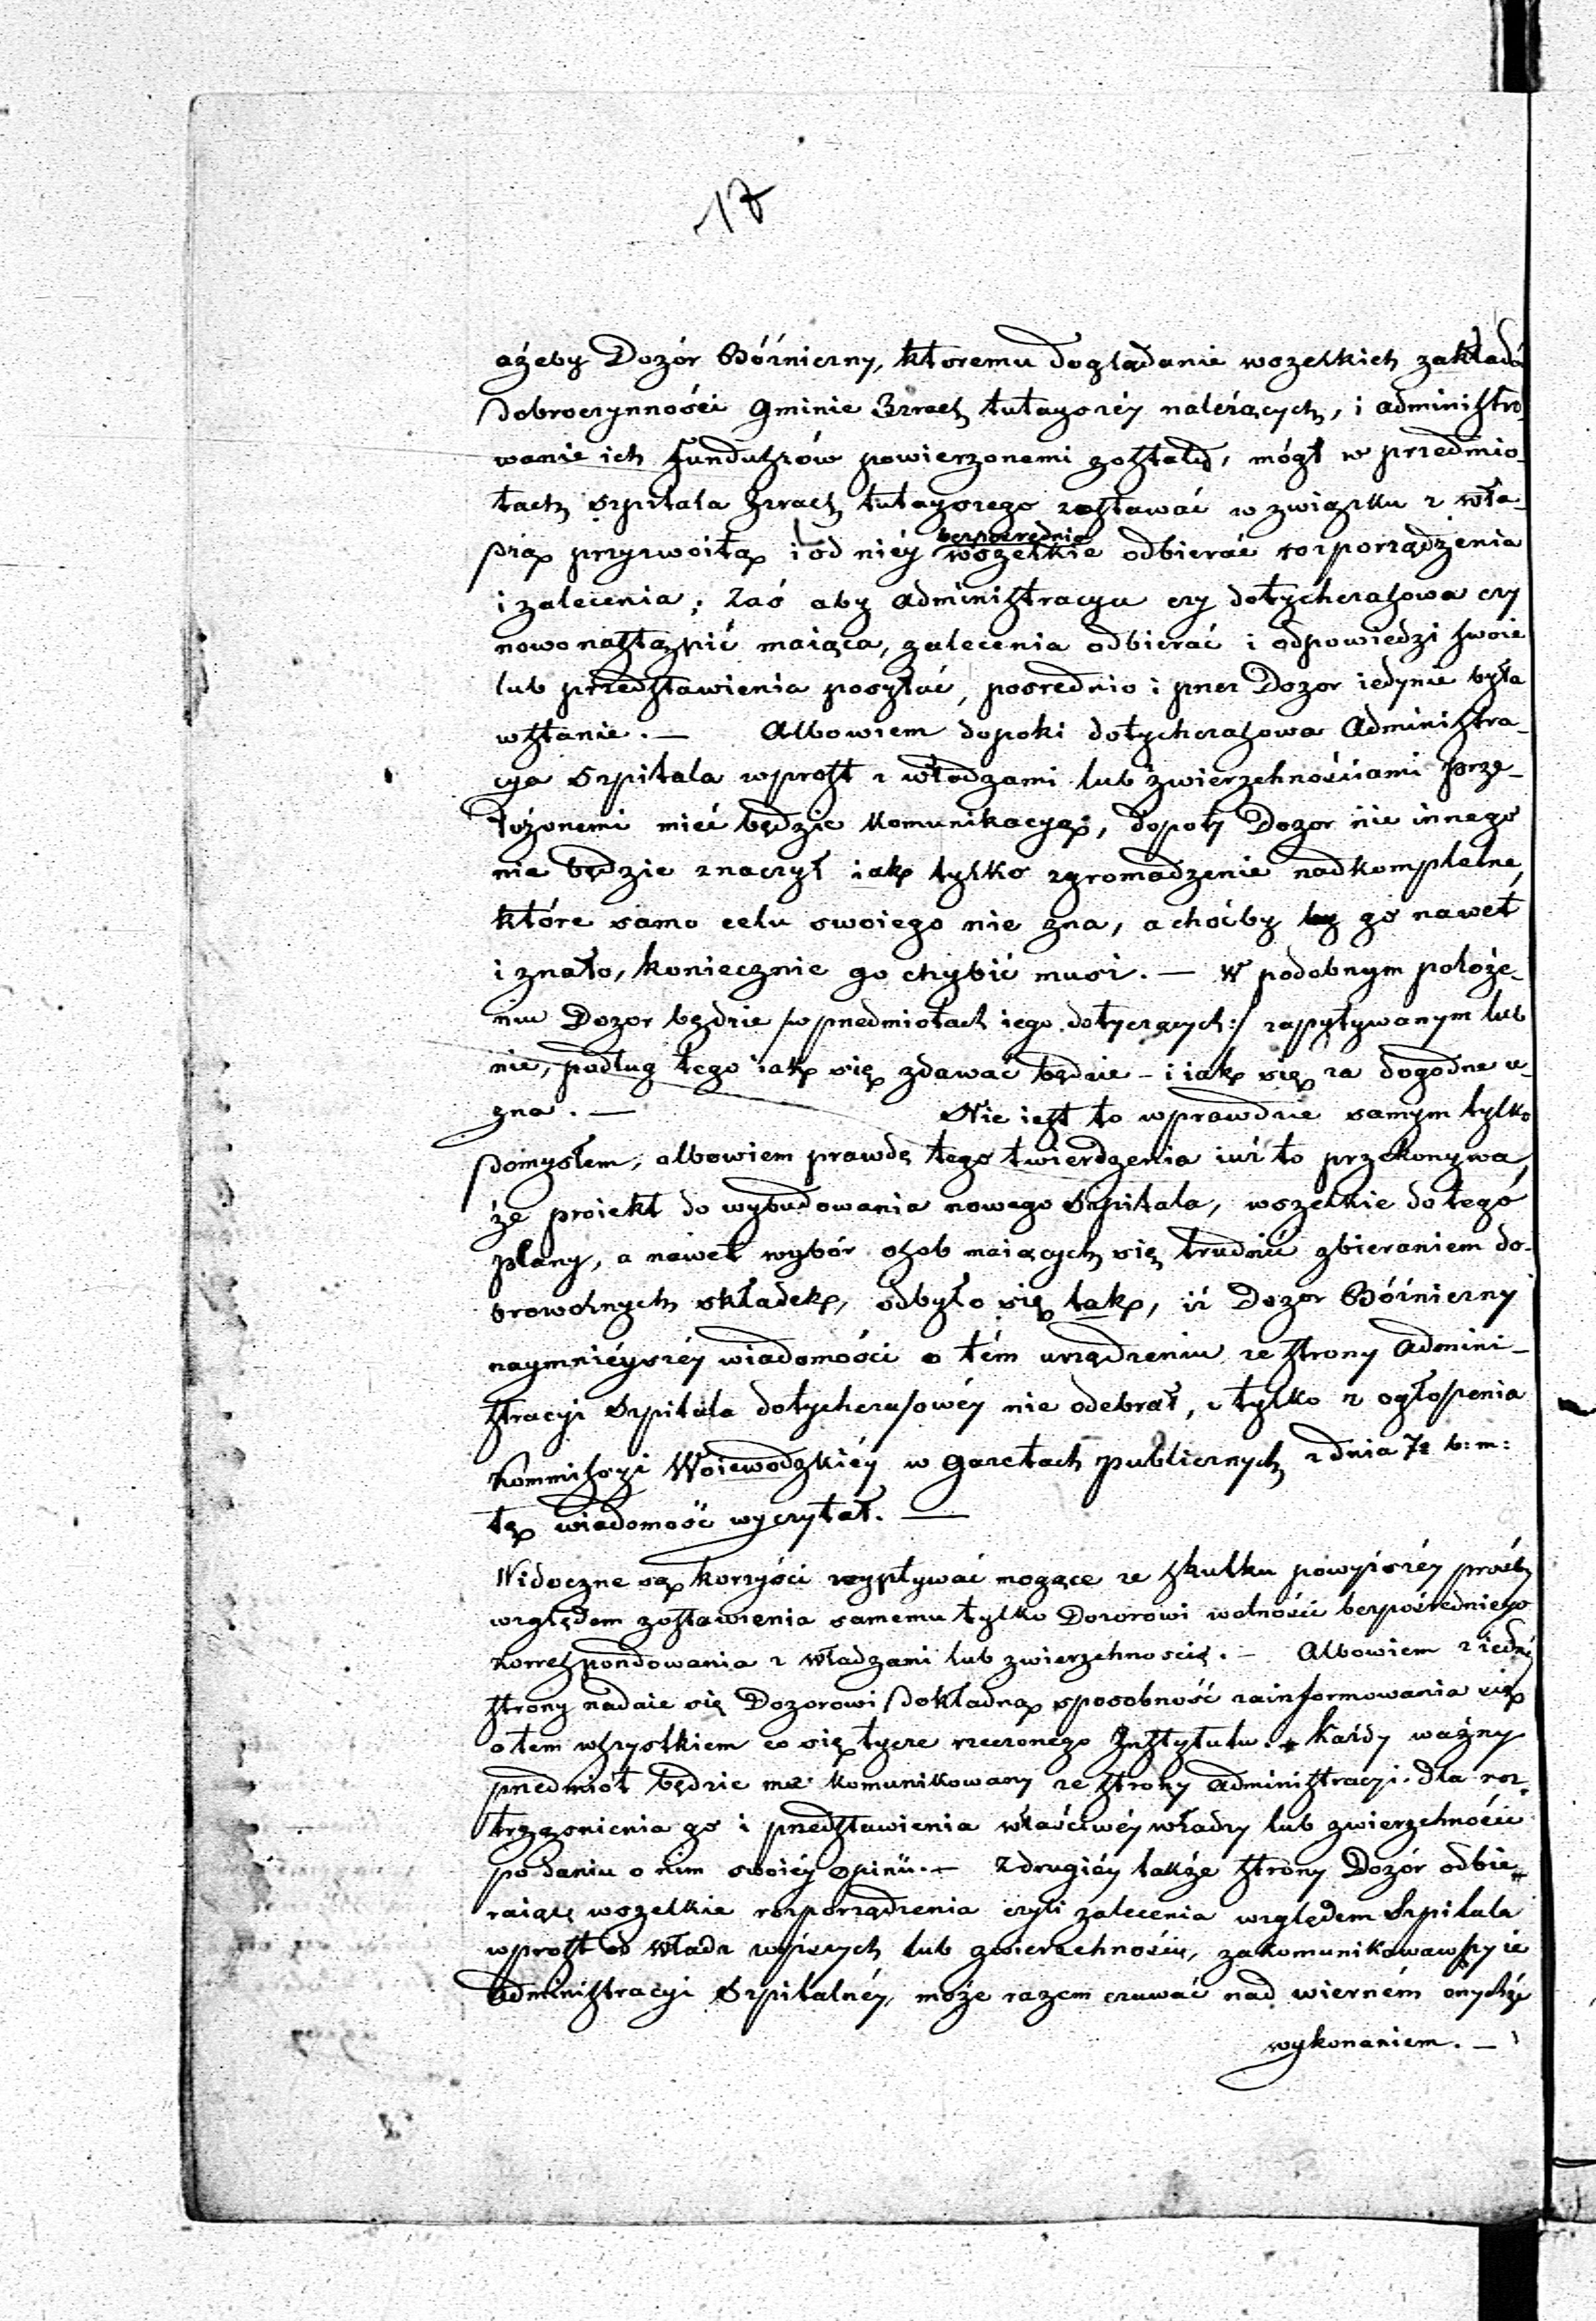 17
ażeby Dozór Bóżniczny, ktoremu doglądanie wszelkich zakładó
dobroczynności Gminie Izrael: tutayszéy należących, i administro-
wanie ich funduszów powierzonemi zostało, mógł w przedmio-
tach szpitala Izrael: tutayszego zostawać w związku z wła-
dzą przyzwoitą i od niéy bezpośrednio wszelkie odbierać rozporządzenia
i zalecenia; Zaś aby administracya czy dotychczasowa czy
nowo nastąpić maiąca, zalecenia odbierać i odpowiedzi swoie
lub przedstawienia posyłać, posrednio i przez Dozor iedynie była
wstanie. — Albowiem dopoki dotychczasowa Administra-
cya Szpitala wprost z władzami lub zwierzchnościami prze-
łożonemi mieć będzie komunikacyą, dopoty Dozor nic innego
nie będzie znaczył iak tylko zgromadzenie nadkompletne,
które samo celu swoiego nie zna, a choćby go nawet
i znało, koniecznie go chybić musi. — W podobnym położe-
niu Dozor będzie /w przedmiotach iego dotyczących:/ zapytywanym lub
nie, podług tego iak się zdawać będzie — i iak się za dogodne u-
zna. — Nie iest to wprawdzie samym tylko
domysłem, albowiem prawdę tego twierdzenia iuż to przekonywa,
że proiekt do wybudowania nowego Szpitala, wszelkie do tegó
plany, a nawet wybór osob maiących się trudnić zbieraniem do-
browolnych składek, odbyło się tak, iż Dozor Bóżniczny
naymnieyszéy wiadomości o tém urządzeniu ze strony Admini-
stracyi Szpitala dotychczasowéy nie odebrał, i tylko z ogłoszenia
Kommissyi Woiewodzkiéy w gazetach publicznych z dnia 7º b: m:
tę wiadomość wyczytał. —
Widoczne są korzyści wypływać mogące ze skutku powyższéy prośby
względem zostawienia samemu tylko Dozorowi wolności bezpośredniego
korrespondowania z władzami lub zwierzchnością. — Albowiem z iedné
strony nadaie się Dozorowi dokładną sposobność zainformowania się
o tem wszystkiem co się tycze rzeczonego Instytutu. Każdy ważny
przedmiot będzie mu komunikowany ze strony administracyi. dla roz-
trząśnienia go i przedstawienia właściwéy władzy lub zwierzchności
po daniu o nim swoiéy opinii. — Z drugiéy także strony Dozór odbie-
raiąc wszelkie rozporządzenia czyli zalecenia względem Szpitala
wprost od władz wyższych lub zwierzchności, zakomunikowawszy ie
administracyi Szpitalnéy, może razem czuwać nad wierném onychże
wykonaniem. —